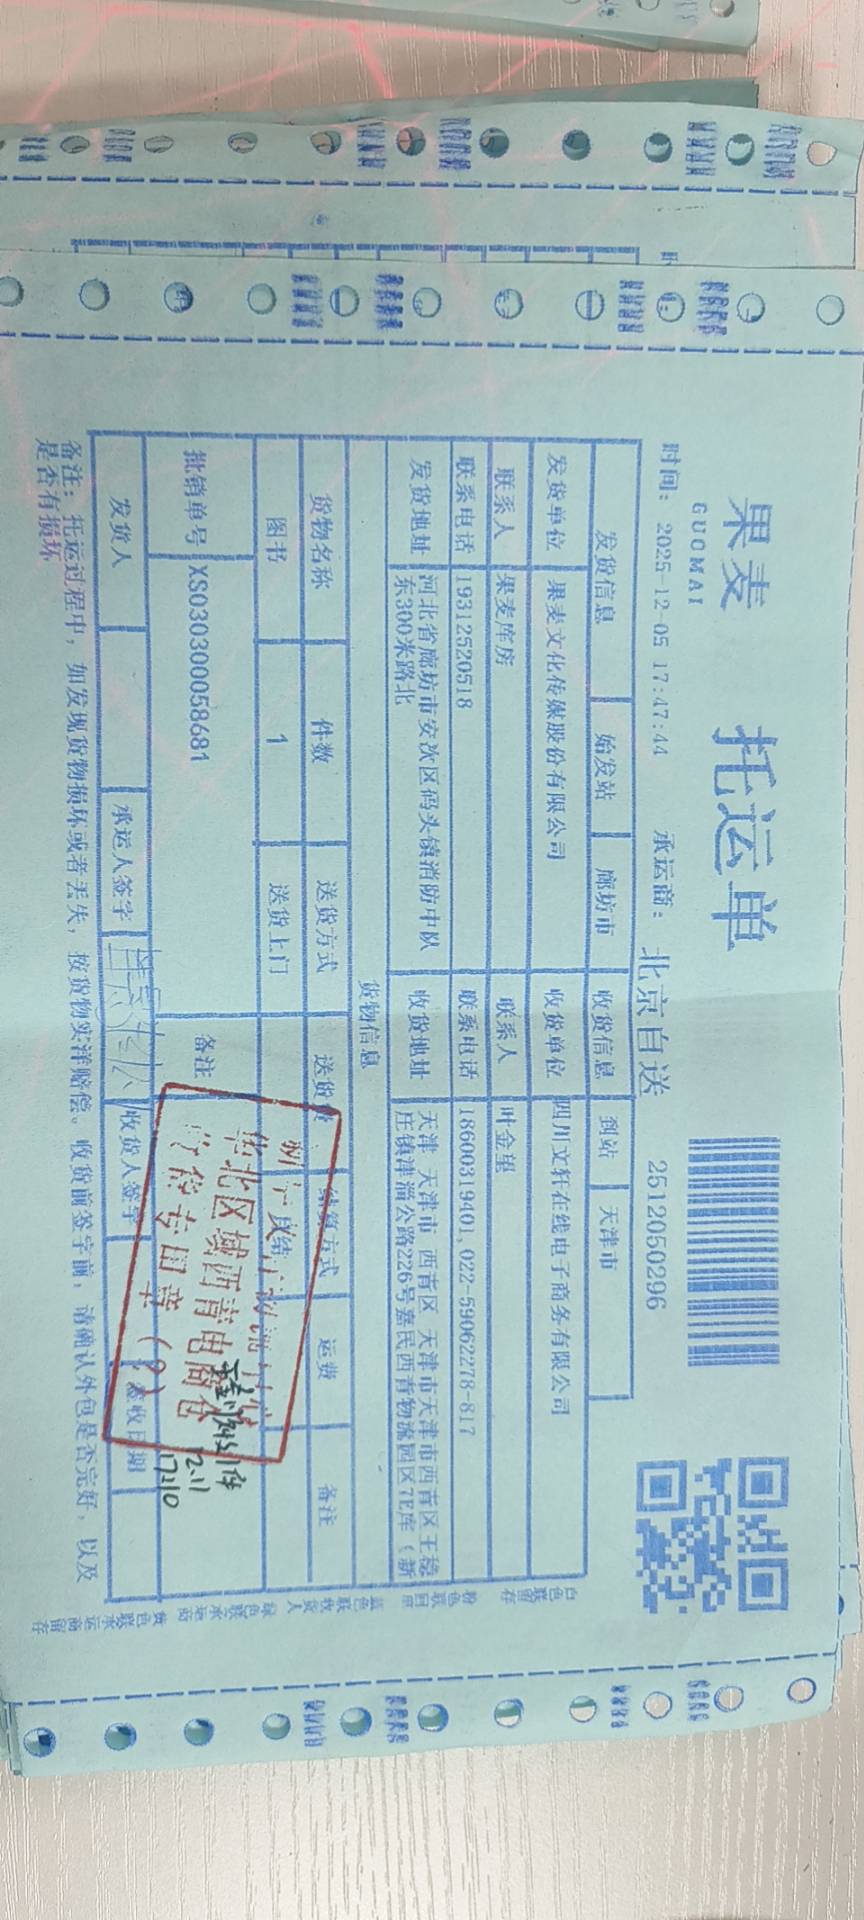 果麦 托运单
GUOMAI
时间: 2025-12-05 17:47:44 承运商: 北京自送 2512050296
发货信息 始发站 廊坊市 收货信息 到站 天津市
发货单位 果麦文化传媒股份有限公司 收货单位 四川文轩在线电子商务有限公司
联系人 果麦库房 联系人 叶金望
联系电话 19312520518 联系电话 18600319401,022-59062278-817
发货地址 河北省廊坊市安次区码头镇消防中队东300米路北 收货地址 天津 天津市 西青区 天津市天津市西青区王稳庄镇津淄公路226号嘉民西青物流园区7E库(新
货物信息
货物名称 件数 送货方式 送货费 结算方式 运费 备注
图书 1 送货上门 月结
批销单号 XS030300058681 备注
发货人 承运人签字 收货人签字 签收日期
备注: 托运过程中, 如发现货物损坏或者丢失, 按货物实洋赔偿。收货前签字前, 请确认外包是否完好, 以及
是否有损坏
华北区域西青电商仓
收货专用章
12.11
17:10
白色联留存
粉色联回单
蓝色联收货人
绿色联承运商
黄色联承运商留存